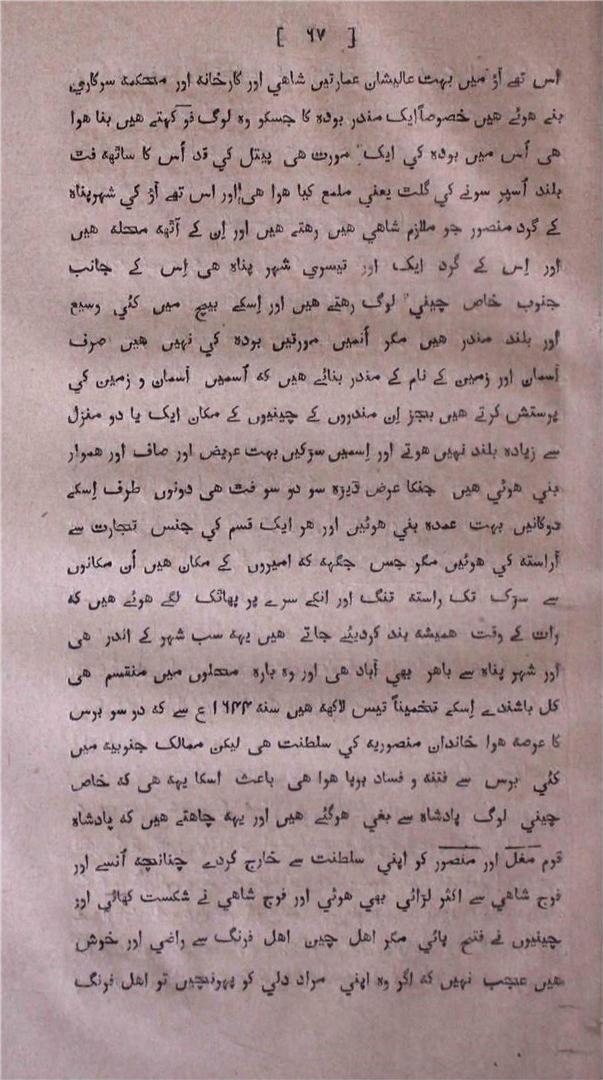 [ ٦٧ ]
اس تھے آؤ میں بہت عالیشان عمارتیں شاهي اور کارخانہ اور محکمہ سرکاري
بنے هوئے هیں خصوصاً ایک مندر بودہ کا جسکو وہ لوگ فو کہتے هیں بنا هوا
هی اُس میں بودہ کي ایک مورت هی پیتل کي قد اُس کا ساٹھہ فٹ
بلند اُسپر سونے کي گلت یعني ملمع کیا هوا هی اور اس تھے آؤ کي شہرپناہ
کے گرد منصور جو ملازم شاهي هیں رهتے هیں اور اِن کے آٹھہ محلہ هیں
اور اِس کے گرد ایک اور تیسري شہر پناہ هی اِس کے جانب
جنوب خاص چیني لوگ رهتے هیں اور اِسکے بیچ میں کئي وسیع
اور بلند مندر هیں مگر اُنمیں مورتیں بودہ کي نہیں هیں صرف
آسمان اور زمین کے نام کے مندر بنائے هیں کہ اُسمیں آسمان و زمین کي
پرستش کرتے هیں بجز اِن مندروں کے چینیوں کے مکان ایک یا دو منزل
سے زیادہ بلند نہیں هوتے اور اِسمیں سڑکیں بہت عریض اور صاف اور هموار
بني هوئي هیں جنکا عرض ڈیڑہ سو دو سو فٹ هی دونوں طرف اِسکے
دوکانیں بہت عمدہ بني هوئیں اور هر ایک قسم کي جنس تجارت سے
آراستہ کي هوئیں مگر جس جگہہ کہ امیروں کے مکان هیں اُن مکانوں
سے سڑک تک راستہ تنگ اور انکے سرے پر پھاٹک لگے هوئے هیں کہ
رات کے وقت همیشہ بند کردیئے جاتے هیں یہہ سب شہر کے اندر هی
اور شہر پناہ سے باهر بھي آباد هی اور وہ بارہ محلوں میں منقسم هی
کل باشندے اِسکے تخمیناً تیس لاکھہ هیں سنہ ١٦۴۴ ع سے کہ دو سو برس
کا عرصہ هوا خاندان منصوریہ کي سلطنت هی لیکن ممالک جنوبیہ میں
کئي برس سے فتنہ و فساد برپا هوا هی باعث اسکا یہہ هی کہ خاص
چیني لوگ پادشاہ سے بغي هوگئے هیں اور یہہ چاهتے هیں کہ پادشاہ
قوم مغل اور منصور کو اپني سلطنت سے خارج کردے چنانچہ اُنسے اور
فوج شاهي سے اکثر لڑائي بھي هوئي اور فوج شاهي نے شکست کھائي اور
چینیوں نے فتح پائي مگر اهل چین اهل فرنگ سے راضي اور خوش
هیں عجب نہیں کہ اگر وہ اپني مراد دلي کو پہونچیں تو اهل فرنگ